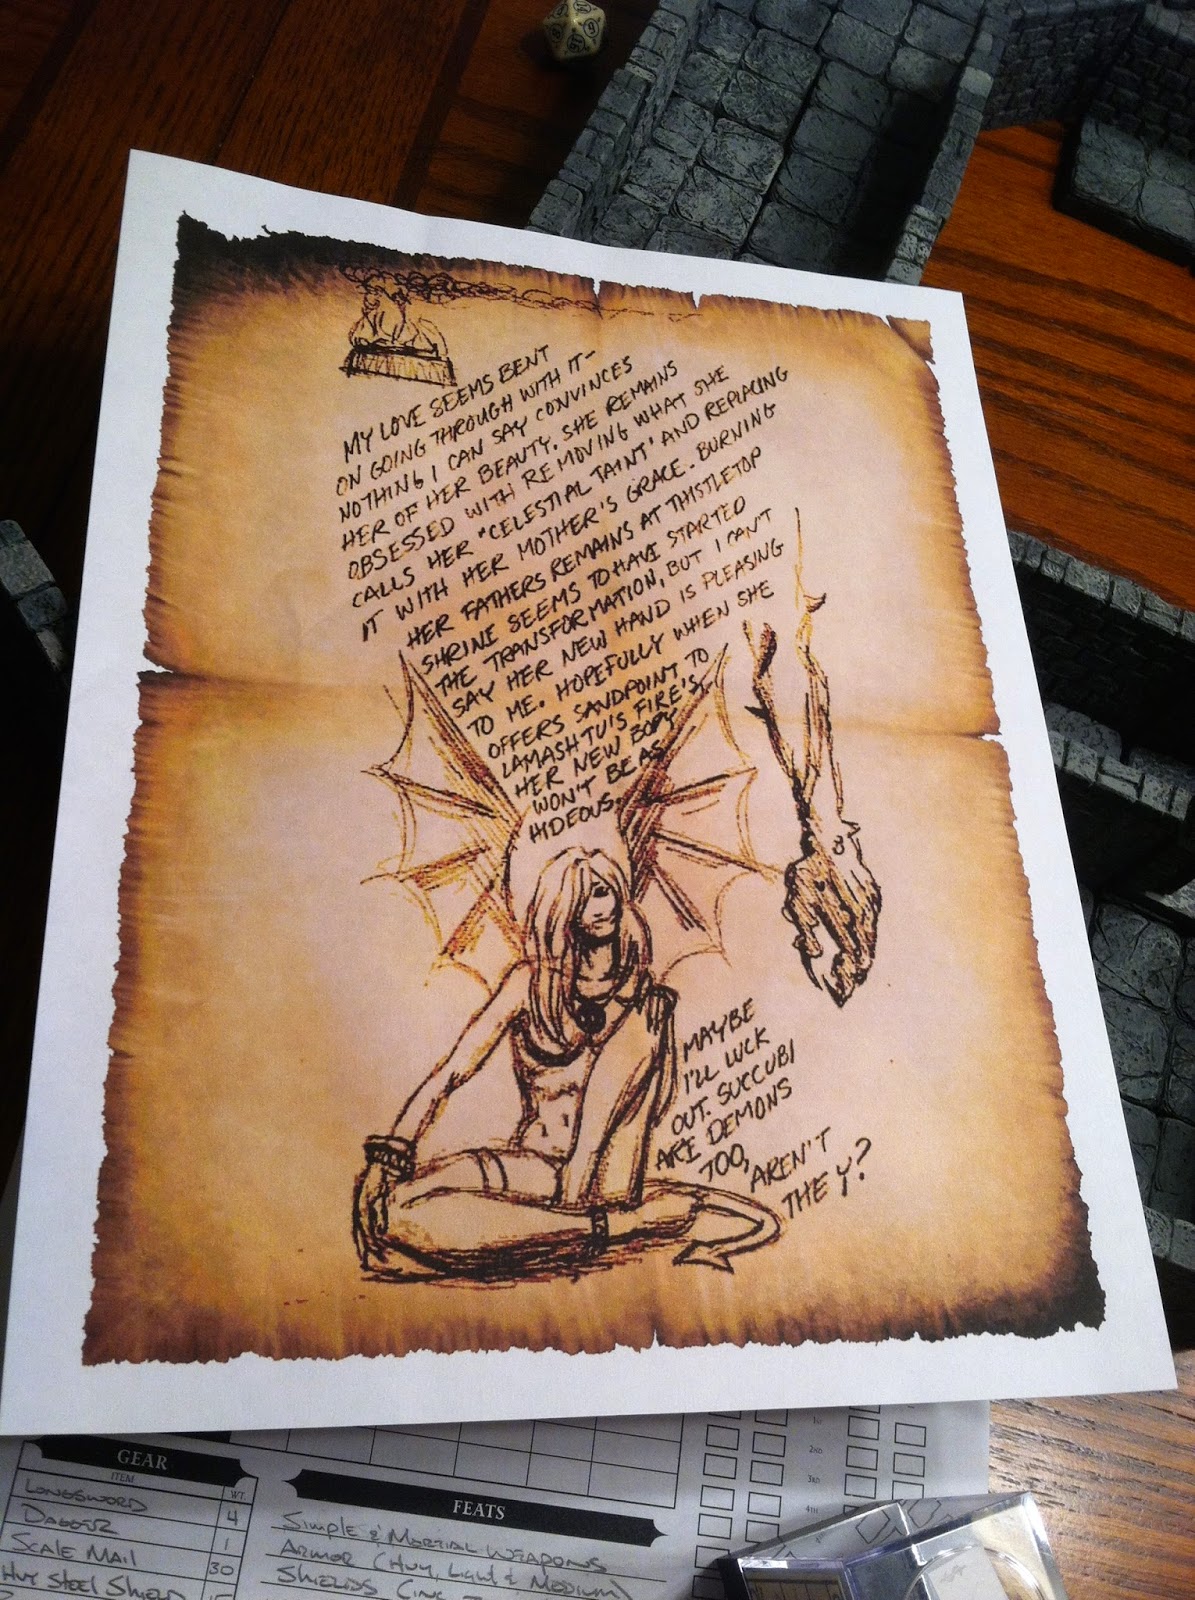 MY LOVE SEEMS BENT
ON GOING THROUGH WITH IT-
NOTHING I CAN SAY CONVINCES
HER OF HER BEAUTY. SHE REMAINS
OBSESSED WITH REMOVING WHAT SHE
CALLS HER "CELESTIAL TAINT" AND REPLACING
IT WITH HER MOTHER'S GRACE. BURNING
HER FATHERS REMAINS AT THISTLETOP
SHRINE SEEMS TO HAVE STARTED
THE TRANSFORMATION, BUT I CAN'T
SAY HER NEW HAND IS PLEASING
TO ME. HOPEFULLY WHEN SHE
OFFERS SANDPOINT TO
LAMASHTU'S FIRE'S
HER NEW BODY
WON'T BE AS
HIDEOUS.
MAYBE
I'LL LUCK
OUT. SUCCUBI
ARE DEMONS
TOO,
AREN'T
THEY?
GEAR
ITEM WT.
LONGSWORD 4
DAGGER 1
SCALE MAIL 30
HVY STEEL SHIELD 15
FEATS
SIMPLE & MARTIAL WEAPONS
ARMOR (HVY, LIGHT & MEDIUM)
SHIELDS
1ST
2ND
3RD
4TH